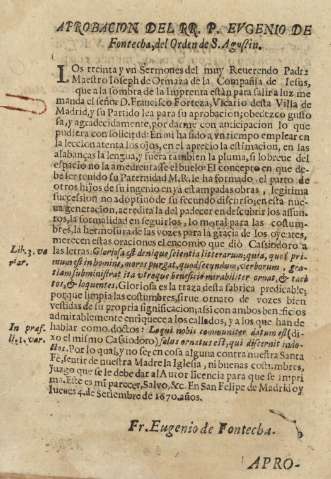 APROBACION DEL RR. P. EVGENIO DE
Fontecha, del Orden de S. Agustin.
LOs treinta y vn Sermones del muy Reuerendo Padre
Maestro Ioseph de Ormaza de la Compañia de Iesus,
que a la sombra de la Imprenta estàn para salir a luz me
manda el señor D. Francisco Forteza, Vicario desta Villa de
Madrid, y su Partido lea para su aprobacion; obedezco gusto
sa, y agradecidamente, por darme con anticipacion lo que
pudiera con solicitud: En mi ha sido a vn tiempo emplear en
la leccion atenta los ojos, en el aprecio la estimacion, en las
alabanças la lengua, y fuera tambien la pluma, si lo breue del
espacio no la
ber leido tenia su Paternidad M. R. le ha formado, el parto de
otros hijos de su ingenio en ya estampadas obras, legitima
succession no adoptiuo de su secundo discurso, en esta nue
ua generacion, acredita la del padecer en descubrir los assun
tos, la formalidad en seguirlos, lo moral para las costum-
bres, la hermosura de las vozes para la gracia de los oyentes,
Lib. 3. va merecen estas oraciones el encomio que diò Cassiodoro a
riar. las letras. Gloriosa est denique scientia litterarum, quia, quod pri-
mum est in homine, mores purgat, quod secundum, verborum, gra-
tiam subministrat ita vtroque beneficio mirabiliter ornat, & tacitos,
& loquentes. Gloriosa es la traza desta fabrica predicable,
porque limpia las costumbres, sirue ornato de vozes bien
vestidas de su propria significacion, assi con ambos beneficios
admirablemente enriquece a los callados, y a los que han de
In præf. hablar como doctos: Loqui nobis communiter datum est (di-
li. 1. var. xo el mismo Cassiodoro) solus ornatus est, qui discernit indo-
ctos. Por lo qual, y no ser en cosa alguna contra nuestra Santa
Fè, sentir de nuestra Madre la Iglesia, ni buenas costumbres,
Iuzgo que se le debe dar al Autor licencia para que se impri
ma. Este es mi parecer, Salvo, &c. En San Felipe de Madrid oy
Iueves 4. de Setiembre de 1670. años.
Fr. Eugenio de Fontecha.
APRO-